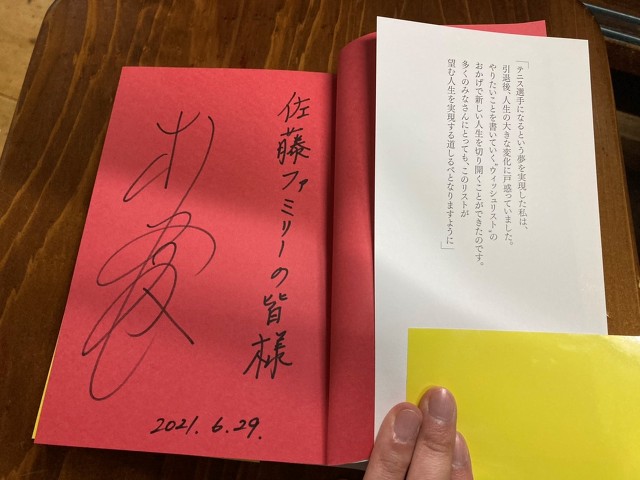 佐藤ファミリーの皆様
2021.6.29.
「テニス選手になるという夢を実現した私は、
引退後、人生の大きな変化に戸惑っていました。
やりたいことを書いていく“ウィッシュリスト”の
おかげで新しい人生を切り開くことができたのです。
多くのみなさんにとっても、このリストが
望む人生を実現する道しるべとなりますように」